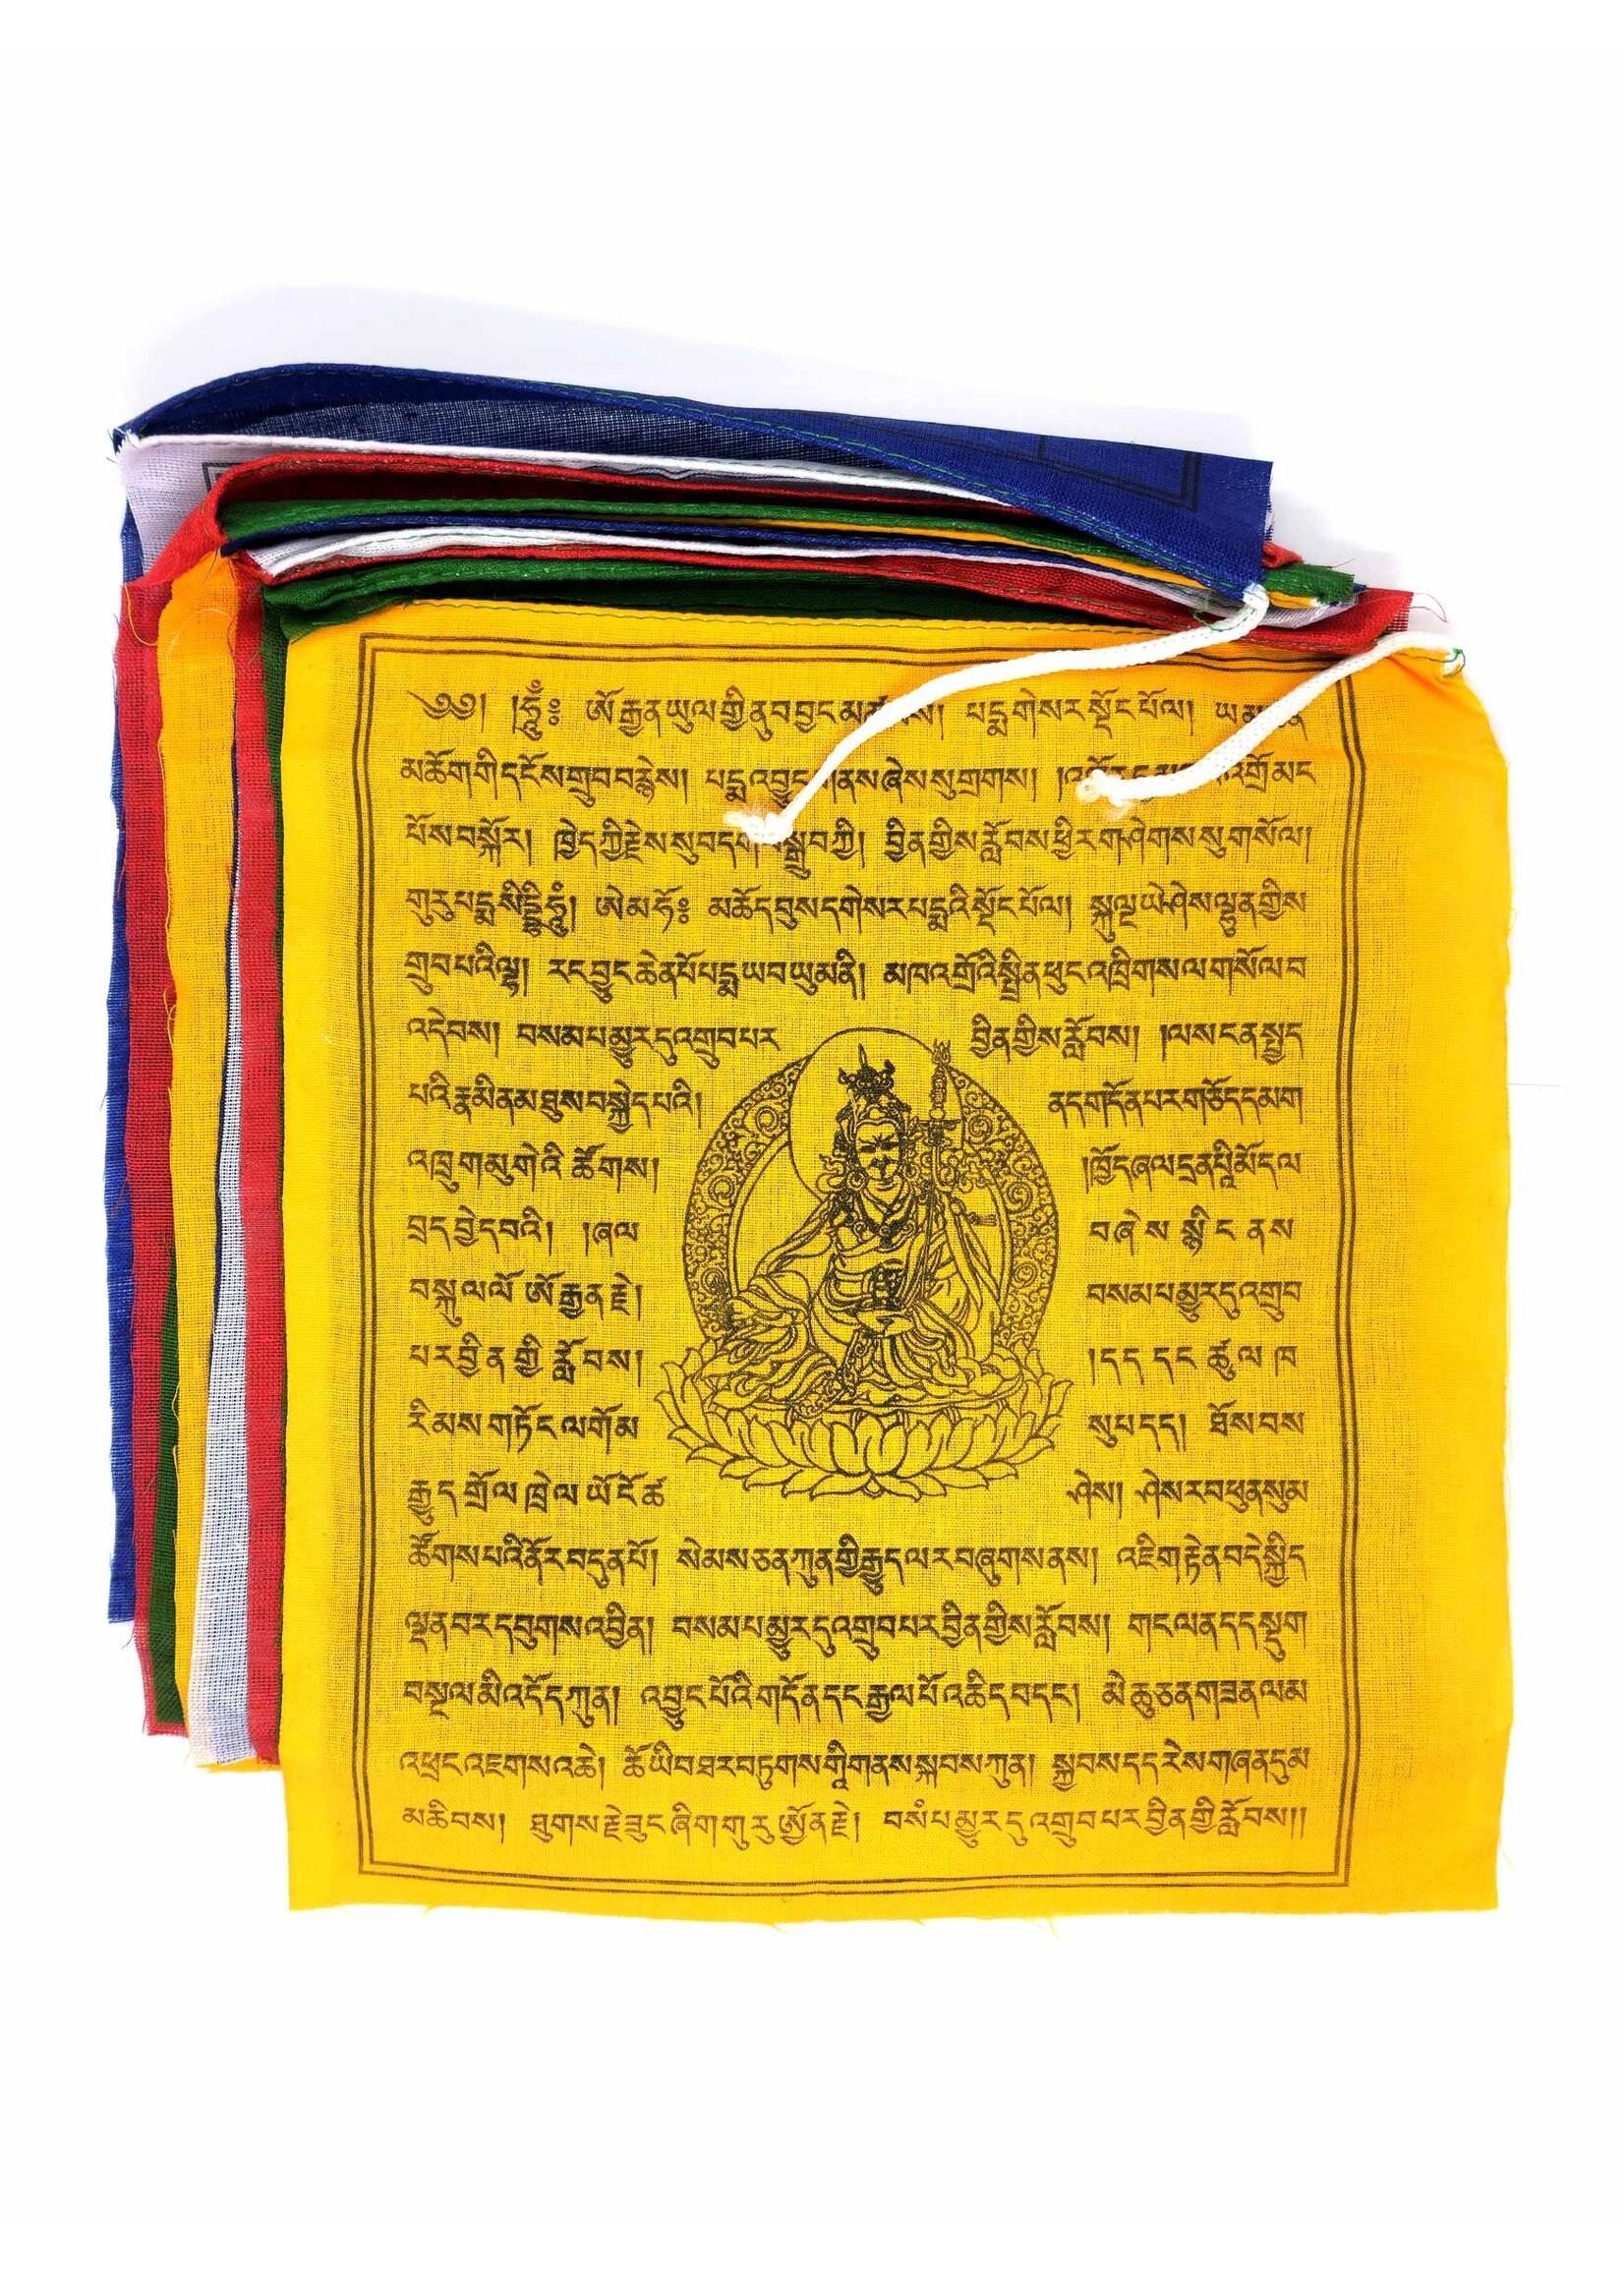 ༄༅། །ཧཱུྃ༔ ཨོ་རྒྱན་ཡུལ་གྱི་ནུབ་བྱང་མཚམས། པདྨ་གེ་སར་སྡོང་པོ་ལ། ཡ་
མཆོག་གི་དངོས་གྲུབ་བརྙེས། པདྨ་འབྱུང་གནས་ཞེས་སུ་གྲགས། འགྲོ་མང་
པོས་བསྐོར། ཁྱེད་ཀྱི་རྗེས་སུ་བདག་བསྒྲུབ་ཀྱི། བྱིན་གྱིས་རློབས་ཕྱིར་གཤེགས་སུ་གསོལ།
གུ་རུ་པདྨ་སིདྡྷི་ཧཱུྃ། ཨེ་མ་ཧོ༔ མཚོ་དབུས་གེ་སར་པདྨའི་སྡོང་པོ་ལ། སྐུ་ལྔ་ཡེ་ཤེས་ལྷུན་གྱིས་
གྲུབ་པའི་ལྷ། རང་བྱུང་ཆེན་པོ་པདྨ་ཡབ་ཡུམ་ནི། མཁའ་འགྲོའི་སྤྲིན་ཕུང་འཁྲིགས་ལ་གསོལ་བ་
འདེབས། བསམ་པ་མྱུར་དུ་འགྲུབ་པར་ བྱིན་གྱིས་རློབས། །ལས་ངན་སྤྱད་
པའི་རྣམ་སྨིན་མཐུས་བསྐྱེད་པའི། ནད་གདོན་བར་གཅོད་དམག་
འཁྲུག་མུ་གེའི་ཚོགས། །ཁྱོད་ཞལ་དྲན་པའི་མོད་ལ་
བྱེད་པའི། །ཞལ་ བཞེས་སྙིང་ནས་
བསྐུལ་ལོ་ཨོ་རྒྱན་རྗེ། བསམ་པ་མྱུར་དུ་འགྲུབ་
པར་བྱིན་གྱི་རློབས། །དད་དང་ཚུལ་ཁྲི
རིམས་གཏོང་ལ་གོམ་ སུ་པ་དད། ཐོས་བས་
རྒྱུད་གྲོལ་ཁྲེལ་ཡོད་ངོ་ཚ་ ཤེས། ཤེས་རབ་ཕུན་སུམ་
ཚོགས་པའི་ནོར་བདུན་པོ། སེམས་ཅན་ཀུན་གྱི་རྒྱུད་ལ་རང་ཞུགས་ནས། འཇིག་རྟེན་བདེ་སྐྱིད་
ལྡན་པར་དབུགས་འབྱིན། བསམ་པ་མྱུར་དུ་འགྲུབ་པར་བྱིན་གྱིས་རློབས། གང་ལ་ནད་དང་སྡུག་
བསྔལ་མི་འདོད་ཀུན། འབྱུང་པོའི་གདོན་དང་རྒྱལ་པོའི་ཆད་པ་དང། མེ་ཆུ་གཅན་གཟན་ལམ་
འཕྲང་འཇིགས་པ་ཆེ། ཚེ་ཡི་ཕ་མཐར་གཏུགས་པའི་གནས་སྐབས་ཀུན། སྐྱབས་དང་རེ་ས་གཞན་དུ་མ་
མཆིས། ཐུགས་རྗེས་ཟུངས་ཤིག་གུ་རུ་ཨོ་རྒྱན་རྗེ། བསམ་པ་མྱུར་དུ་འགྲུབ་པར་བྱིན་གྱི་རློབས།།